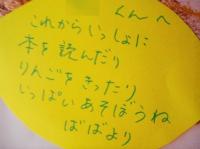 くんへ
これからいっしょに
本を読んだり
りんごをきったり
いっぱいあそぼうね
ばばより